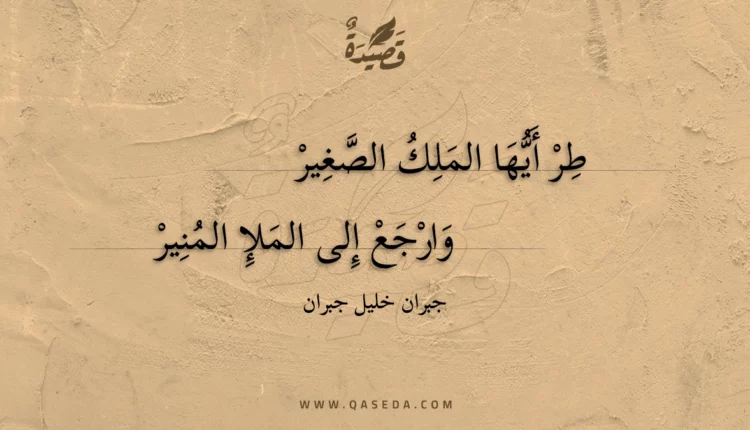 قَصِيْدَةٌ
طِرْ أَيُّهَا المَلِكُ الصَّغِيرْ
وَارْجَعْ إِلى المَلإِ المُنِيرْ
جبران خليل جبران
WWW.QASEDA.COM